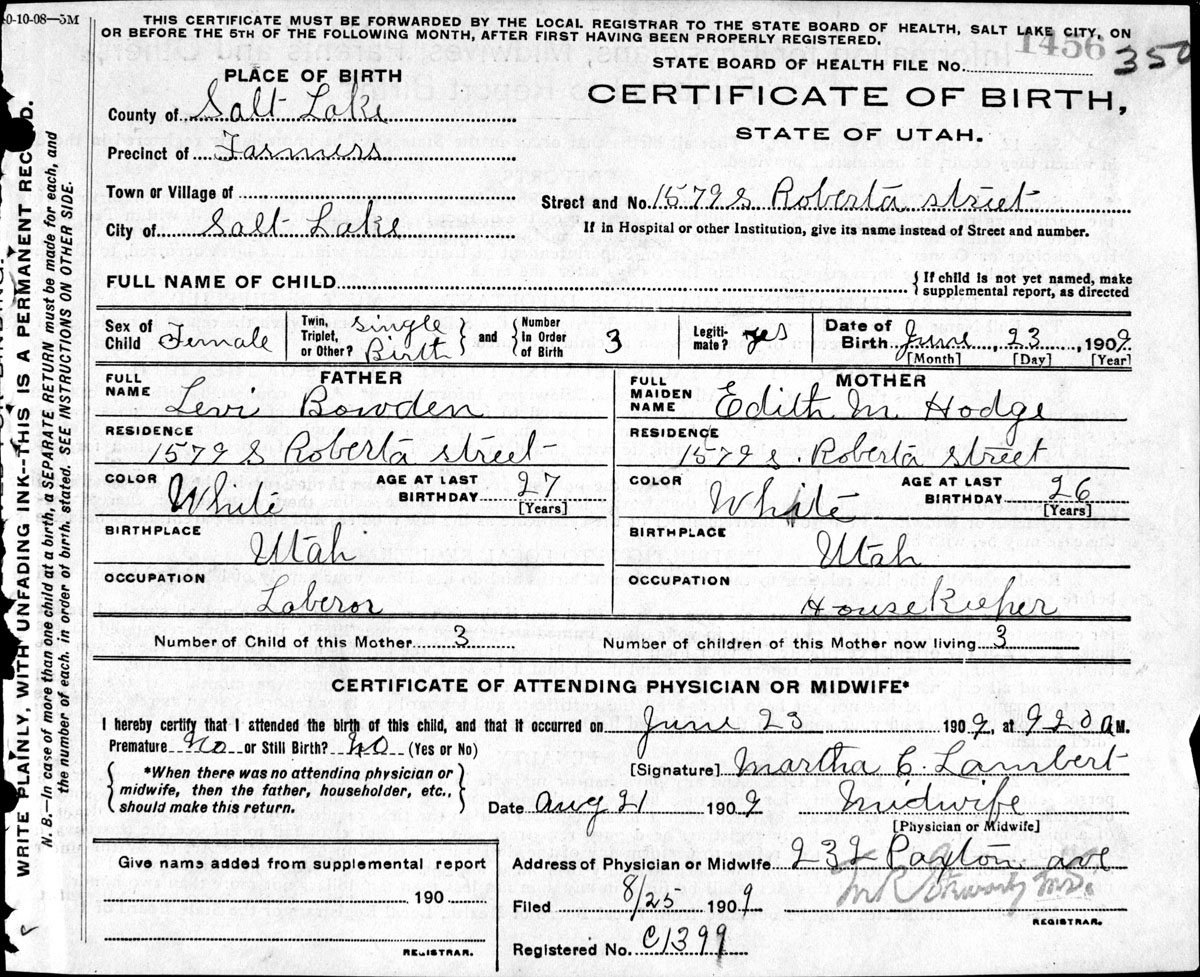 0-10-08—5M
THIS CERTIFICATE MUST BE FORWARDED BY THE LOCAL REGISTRAR TO THE STATE BOARD OF HEALTH, SALT LAKE CITY, ON
OR BEFORE THE 5TH OF THE FOLLOWING MONTH, AFTER FIRST HAVING BEEN PROPERLY REGISTERED.
1456
350
STATE BOARD OF HEALTH FILE NO.
PLACE OF BIRTH
CERTIFICATE OF BIRTH,
STATE OF UTAH.
County of Salt Lake
Precinct of Farmers
Town or Village of
Street and No. 1579 S Roberta street
City of Salt Lake
If in Hospital or other Institution, give its name instead of Street and number.
FULL NAME OF CHILD
{ If child is not yet named, make
supplemental report, as directed
Sex of Child Female
Twin, Triplet, or Other? Single Birth } and { Number In Order of Birth 3
Legiti- mate? yes
Date of Birth June 23, 1909
[Month] [Day] [Year]
FATHER
FULL NAME Levi Bowden
RESIDENCE
1579 S Roberta street
COLOR White
AGE AT LAST BIRTHDAY 27
[Years]
BIRTHPLACE
Utah
OCCUPATION
Laberor
MOTHER
FULL MAIDEN NAME Edith M Hodge
RESIDENCE
1579 S. Roberta street
COLOR White
AGE AT LAST BIRTHDAY 26
[Years]
BIRTHPLACE
Utah
OCCUPATION
House Kieper
Number of Child of this Mother 3 Number of children of this Mother now living 3
CERTIFICATE OF ATTENDING PHYSICIAN OR MIDWIFE*
I hereby certify that I attended the birth of this child, and that it occurred on June 23 1909, at 920 A M.
Premature No or Still Birth? No (Yes or No)
{ *When there was no attending physician or
midwife, then the father, householder, etc.,
should make this return. }
[Signature] Martha C Lambert
Date Aug 21 1909 Midwife
[Physician or Midwife]
Give name added from supplemental report
190
REGISTRAR.
Address of Physician or Midwife 232 Paxton ave
Filed 8/25 1909
REGISTRAR.
Registered No. C1399
WRITE PLAINLY, WITH UNFADING INK--THIS IS A PERMANENT RECORD.
N. B.—In case of more than one child at a birth, a SEPARATE RETURN must be made for each, and
the number of each. in order of birth. stated. SEE INSTRUCTIONS ON OTHER SIDE.